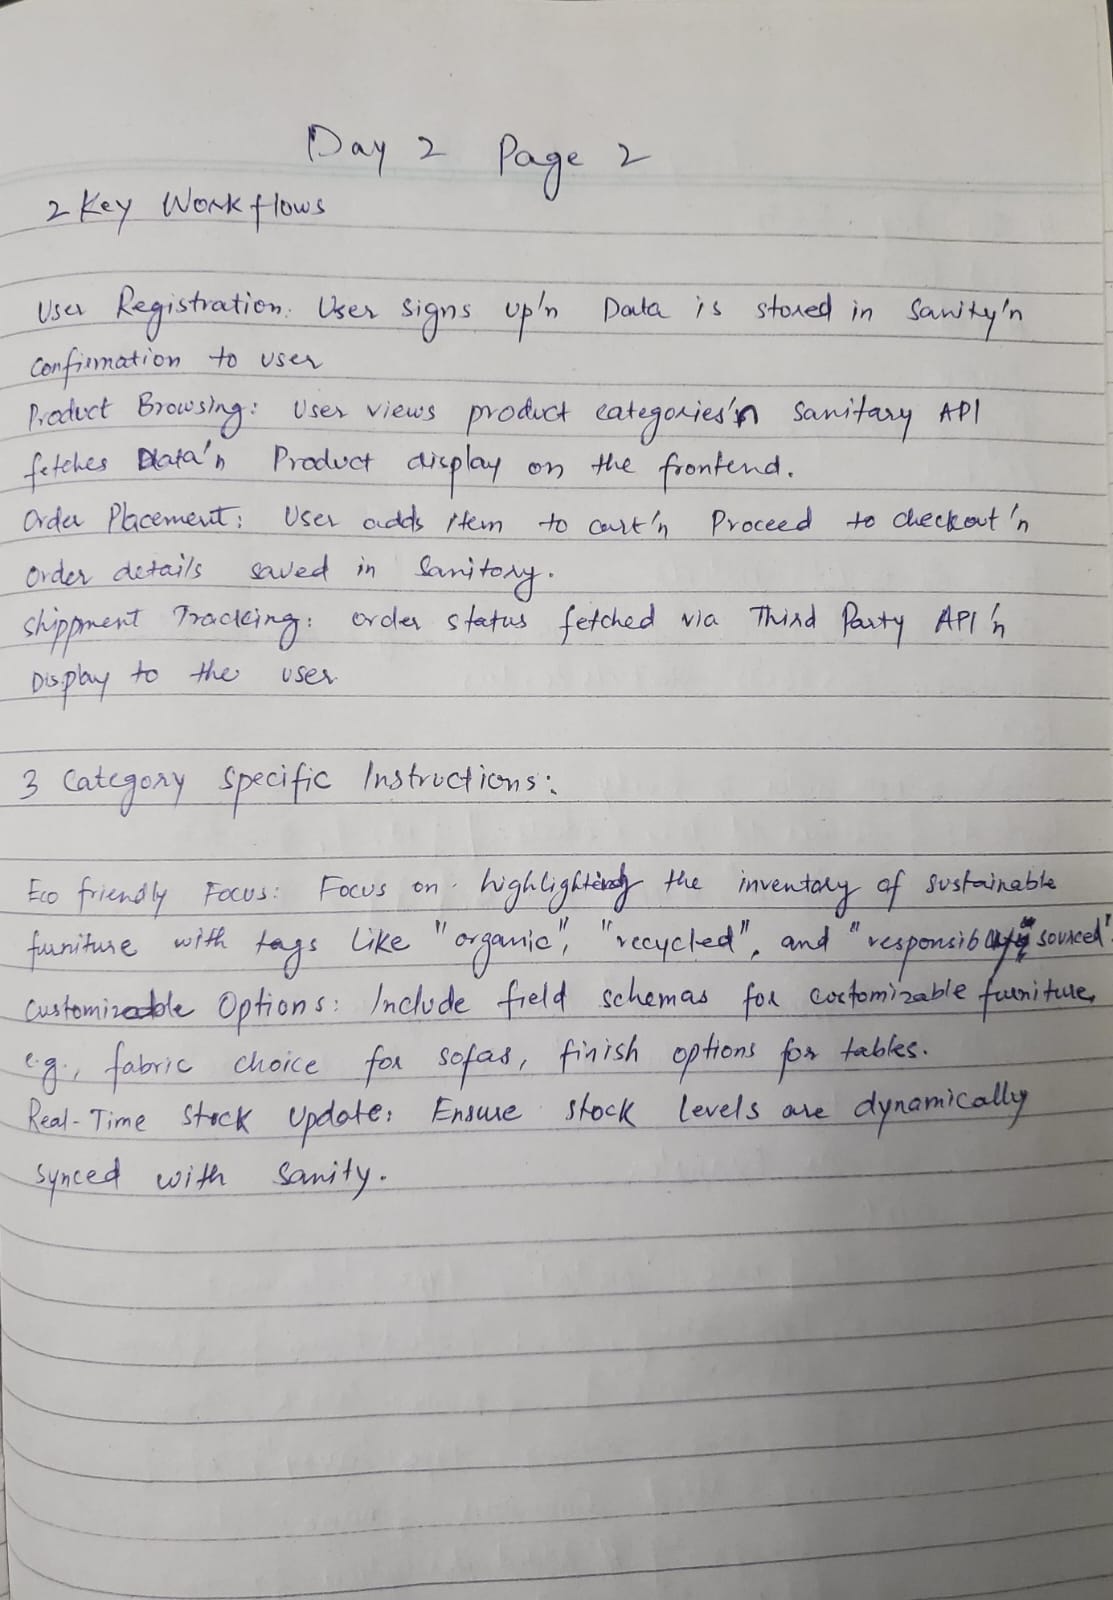 Day 2 Page 2
2 Key Workflows
User Registration: User signs up'n Data is stored in Sanity'n
Confirmation to user
Product Browsing: User views product categories'n Sanitary API
fetches Data'n Product display on the frontend.
Order Placement: User adds item to cart'n Proceed to checkout'n
Order details saved in Sanitory.
Shippment Tracking: order status fetched via Third Party API'n
Display to the user
3 Category Specific Instructions:
Eco friendly Focus: Focus on highlighting the inventory of sustainable
furniture with tags like "organic", "recycled", and "responsibly sourced".
Customizable Options: Include field schemas for costomizable furniture,
e.g., fabric choice for sofas, finish options for tables.
Real-Time Stock Update: Ensure stock levels are dynamically
synced with Sanity.